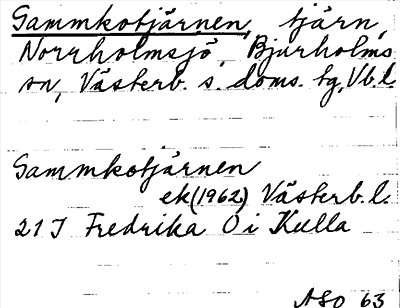 Gammkotjärnen, tjärn,
Norrholmsjö, Bjurholms
sn, Västerb. s. doms. tg, Vb.l.
Gammkotjärnen
ek (1962) Västerb. l.
21 J Fredrika O i Kulla
ASO 63